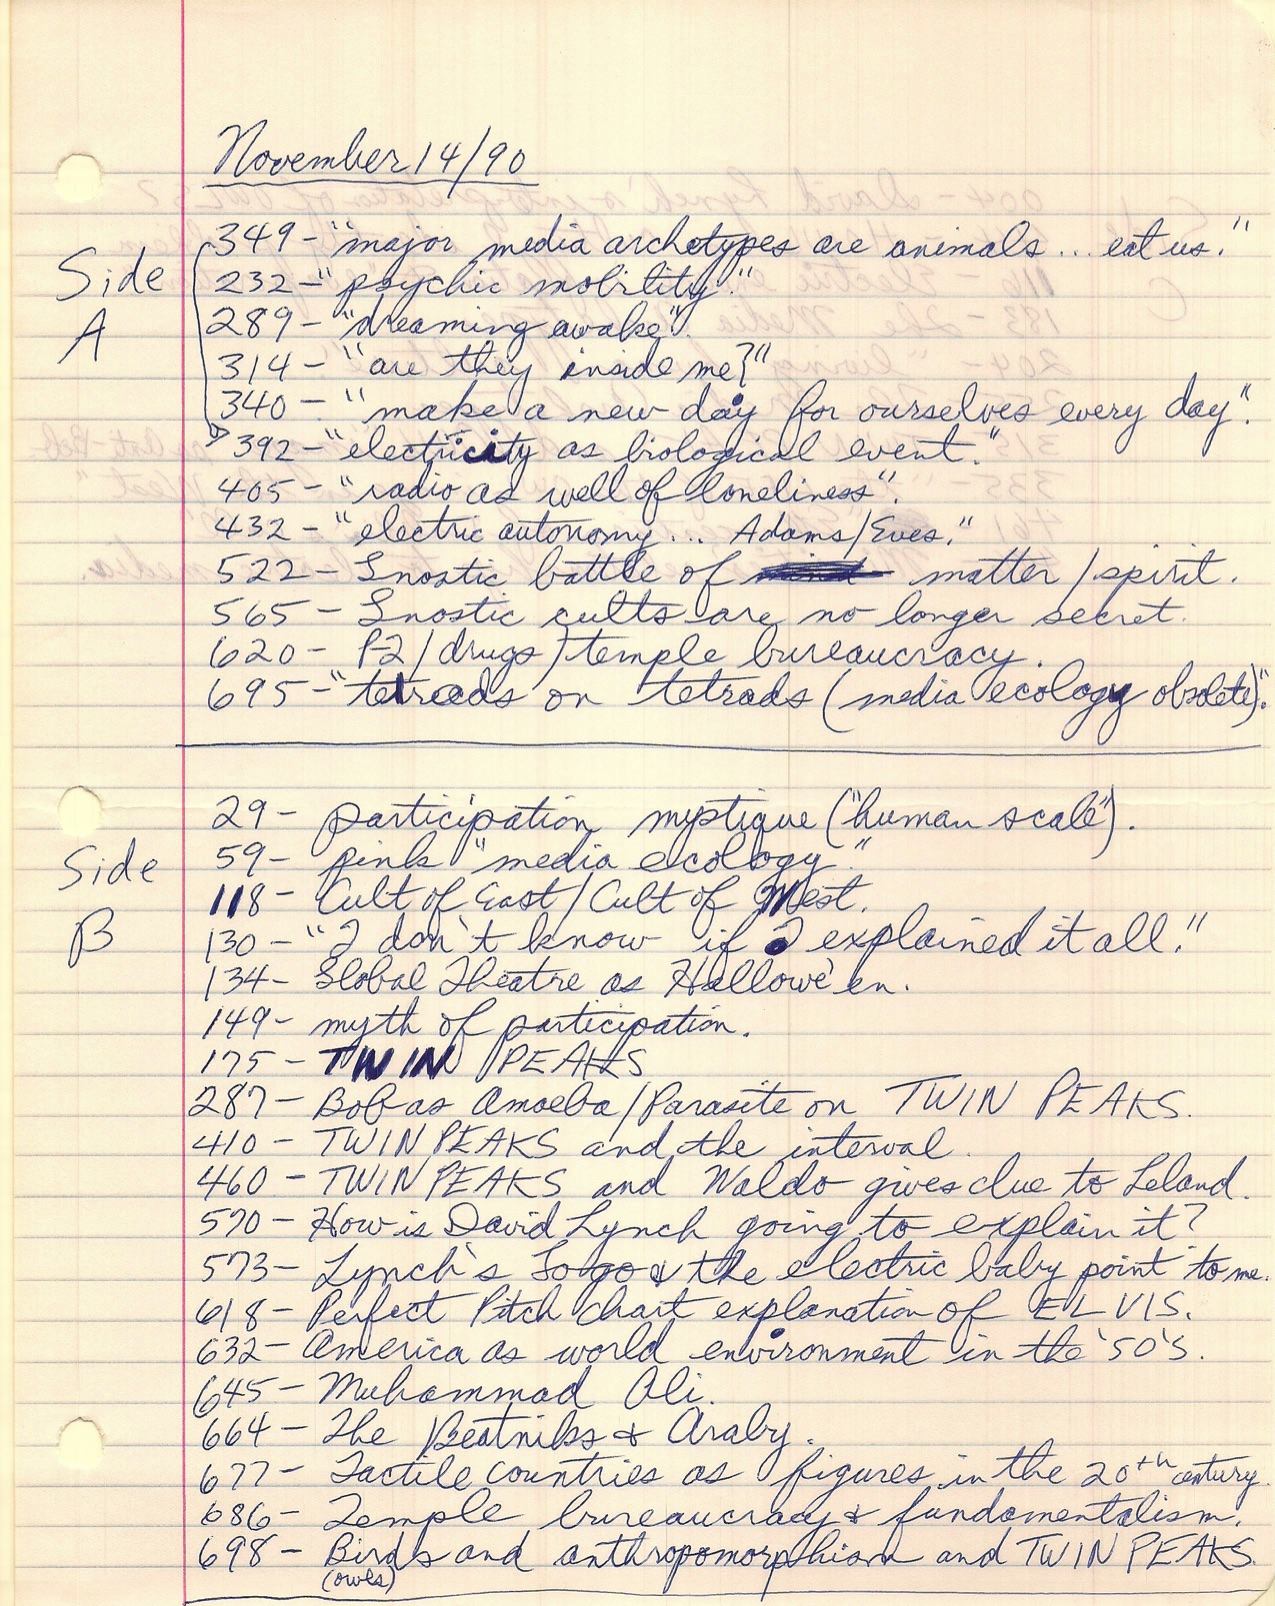 November 14/90
Side A
349 - "major media archetypes are animals... eat us."
232 - "psychic mobility."
289 - "dreaming awake".
314 - "are they inside me?"
340 - "make a new day for ourselves every day".
392 - "electricity as biological event."
405 - "radio as well of loneliness".
432 - "electric autonomy... Adams/Eves."
522 - Gnostic battle of matter/spirit.
565 - Gnostic cults are no longer secret.
620 - P2/drugs/temple bureaucracy.
695 - "tetrads on tetrads (media ecology obsolete)."
Side B
29 - participation mystique ("human scale").
59 - pink "media ecology"
118 - Cult of East/Cult of West.
130 - "I don't know if I explained it all."
134 - Global Theatre as Hallowe'en.
149 - myth of participation.
175 - TWIN PEAKS
287 - Bob as Amoeba/Parasite on TWIN PEAKS.
410 - TWIN PEAKS and the interval.
460 - TWIN PEAKS and Waldo gives clue to Leland.
570 - How is David Lynch going to explain it?
573 - Lynch's Logo & the electric baby point to me.
618 - Perfect Pitch chart explanation of ELVIS.
632 - America as world environment in the '50's.
645 - Muhammad Ali.
664 - The Beatniks & Araby.
677 - Tactile countries as figures in the 20th century.
686 - Temple bureaucracy & fundamentalism.
698 - Birds and anthropomorphism and TWIN PEAKS
(owls)